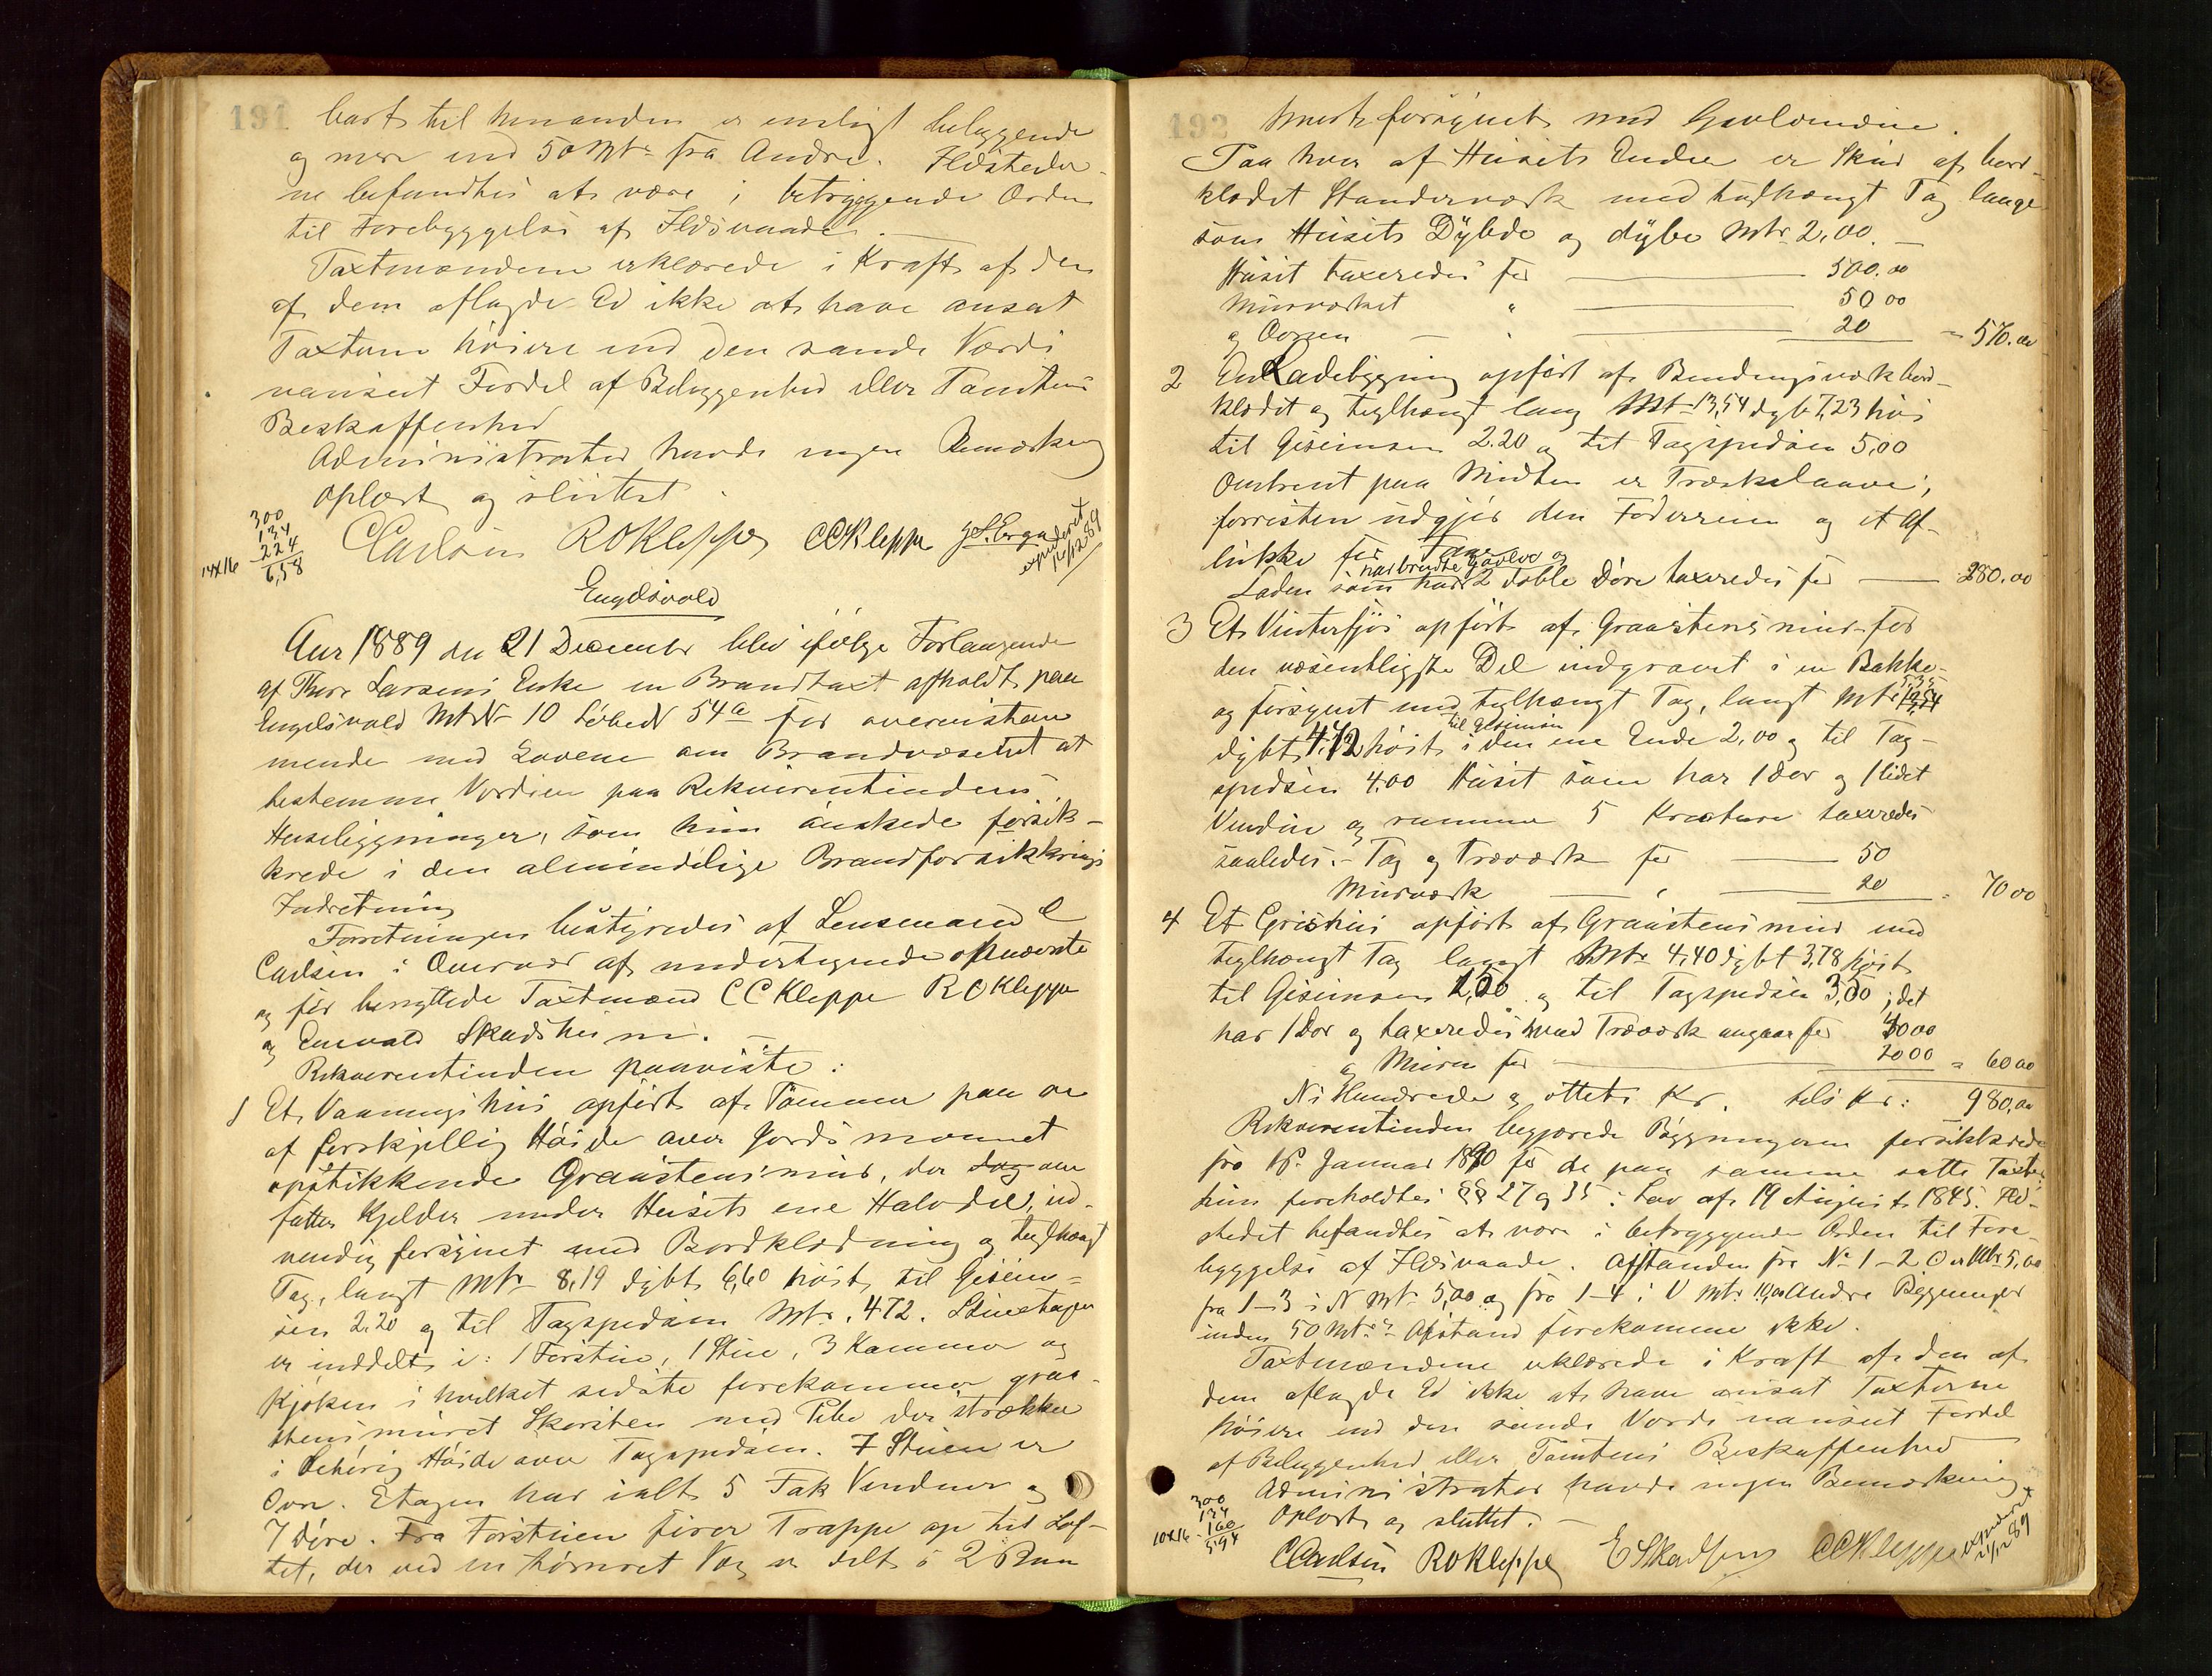 191
bart til hinanden er enligt beliggende
og mere end 50 Mtr fra Andre. Ildstederne
ne befandtes at være i betryggende Orden
til Forebyggelse af Ildsvaade. —
Taxtmændene erklærede i Kraft af den
af dem aflagde Ed ikke at have ansat
Taxterne höiere end den sande Værdi
uanseet Fordel af Beliggenhed eller Tomtens
Beskaffenhed
Administrator havde ingen Bemærkning
Oplæst og sluttet.
300
134
14X16 224
6,58
CCarlsen ROKleppe CCKleppe
expederet
14/12 89
Engelsvold
Aar 1889 den 21 December blev ifölge Forlangende
af Thore Larsens Enke en Brandtaxt afholdt paa
Engelsvold MtrN 10 LöbeN 54a for overenstem
mende med Lovene om Brandvæsenet at
bestemme Værdien paa Rekvirentindens
Husebygninger, som hun önskede forsik-
krede i den almindelige Brandforsikkrings
Indretning
Forretningen bestyredes af Lensmand C
Carlsen i Overvær af undertegnede opnævnte
og för benyttede Taxtmænd CC Kleppe RO Kleppe
og Enevald Skadsheim. —
Rekverentinden paaviste:
1 Et Vaaningshus opfört af Tömmer paa en
af forskjellig Höide over Jordsmonnet
opstikkende Graastensmur, der om
fatter Kjelder under Husets ene Halvdel, ud-
vendig forsynet med Bordklædning og teglhængt
Tag, langt Mtr 8,19 dybt 6,60 höit til Gesim-
sen 2.20 og til Tagspidsen Mtr. 4.72. Stueetagen
er inddelt i: 1 Forstue, 1 Stue, 3 Kammer og
Kjöken i hvilket sidste forekommer graa-
stensmuret Skorsten med Pibe der strækker
i behörig Höide over Tagspidsen. I Stuen er
Ovn. Etagen har ialt 5 Fak Vinduer og
7 Döre. Fra Forstuen förer Trappe op til Lof-
tet, der ved en Væg er delt i 2 Rum
192
forsynet med Gavlvindue.
Paa hver af Husets Ender er Skur af bord-
klædet Standerværk med halvhængt Tag lange
som Husets Dybde og dybe Mtr 2,00. —
Huset taxeredes for — 500.00
Murværket " — 50 00
og Ovnen — 20 = 570.00
2 En Ladebygning opfört af Bendingsværk bord-
klædet og teglhængt lang Mtr 13,54 dyb 7,23 höi
til Gesimsen 2.20 og til Tagspidsen 5,00
Omtrent paa Midten er Træskelaave,
forresten udgjör den Foderrum og et Af-
lukke for
har brudte Gavler og
Laden som har 2 doble Döre taxeredes for — 280.00
3 Et Vinterfjös opfört af Graastensmur for
den væsentligste Del indgravet i en Bakke
5,35
og forsynet med teglhængt Tag, langt Mtr
til Gesimsen
dybt 4,72 höit i den ene Ende 2,00 og til Tag-
spidsen 4.00 Huset som har 1 Dör og 1 lidet
Vindue og rummer 5 Kreature taxeredes
saaledes: Tag og Træværk for — 50
Murværk — 20 = 70 00
4 Et Grishus opfört af Graastensmur med
teglhængt Tag langt Mtr 4,40 dybt 3,78 höit
til Gesimsen 1,50 og til Tagspidsen 3,50; det
har 1 Dör og taxeredes hvad Træværk angaar for 40 00
og Muren for — 20 00 = 60 00
Ni Hundrede og otteti Kr. tils Kr: 980,00
Rekverentinden begjærede Bygningerne forsikkrede
fra 1ste Januar 1890 for de paa samme satte Taxter
hun foreholdtes §§ 27 og 35 i Lov af 19 August 1845. Ild-
stedet befandtes at være i betryggende Orden til Fore-
byggelse af Ildsvaade. Afstanden fra No 1–2 O er Mtr 5,00
fra 1–3 i N Mtr 5,00 og fra 1–4 i V Mtr 10,00 Andre Bygninger
inden 50 Mtrs Afstand forekommer ikke.
Taxtmændene erklærede i Kraft af den af
dem aflagde Ed ikke at have ansat Taxterne
höiere end den sande Værdi uanseet Fordel
af Beliggenhed eller Tomtens Beskaffenhed
Administrator havde ingen Bemærkning
Oplæst og sluttet. —
300
134
10X16 160
5.94
CCarlsen ROKleppe ESkadsem CCKleppe
expederet
21/12 89